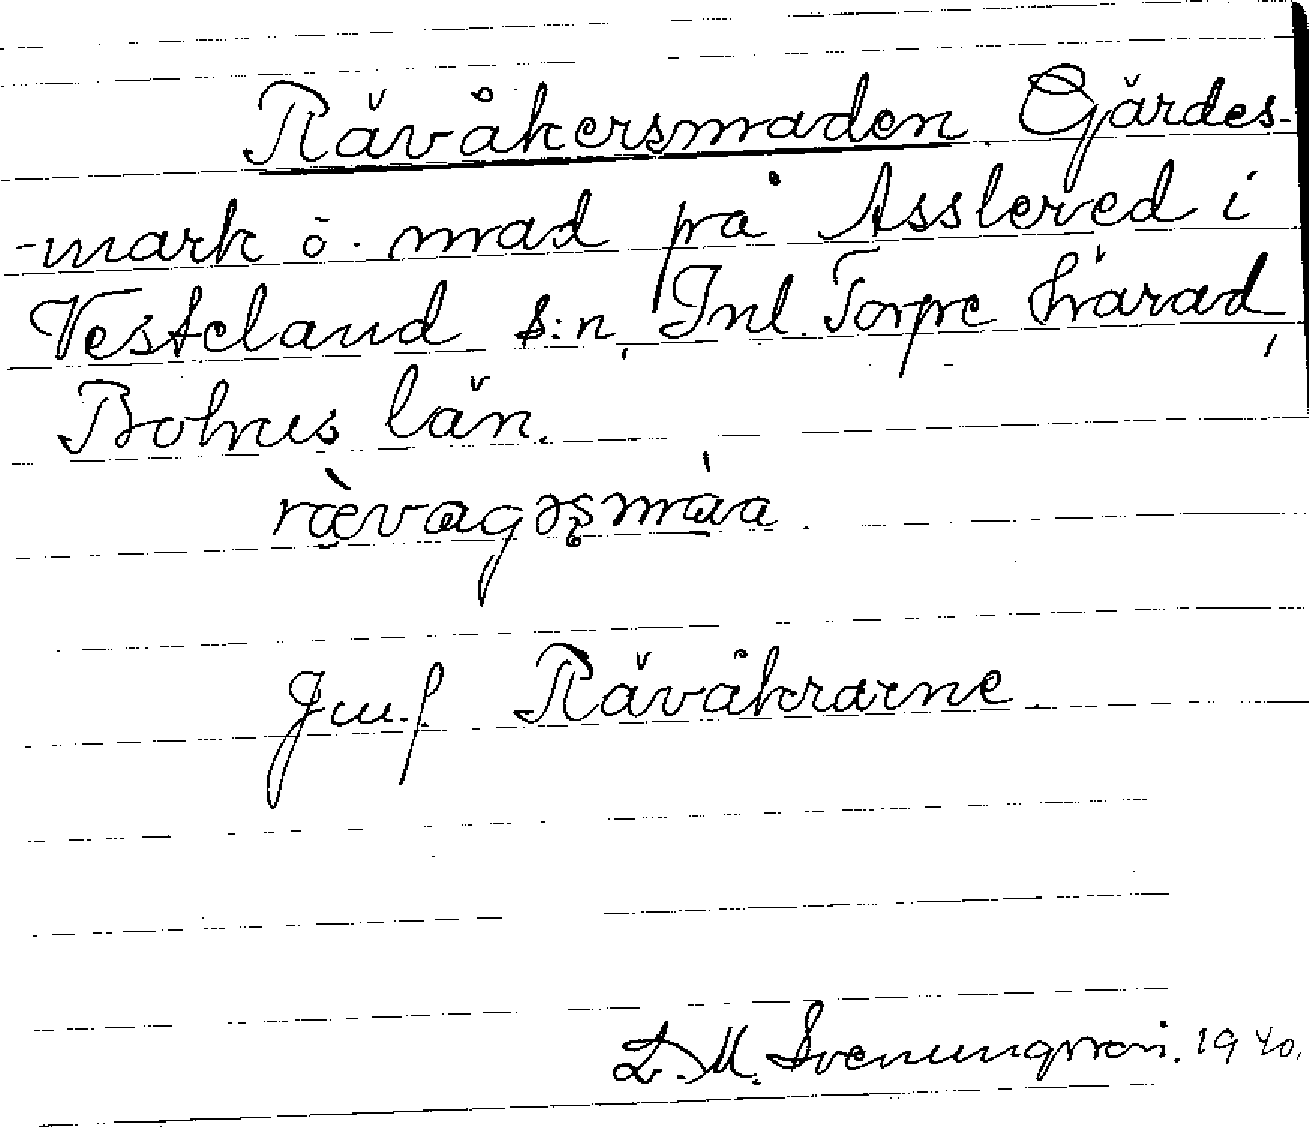 Rävåkersmaden Gärdes-
-mark o. mad på Asslered i
Vesteland s:n, Inl. Torpe härad,
Bohus län.
rævagəsmáa.
Jmf. Rävåkrarne.
L. M. Svenungsson. 1940.